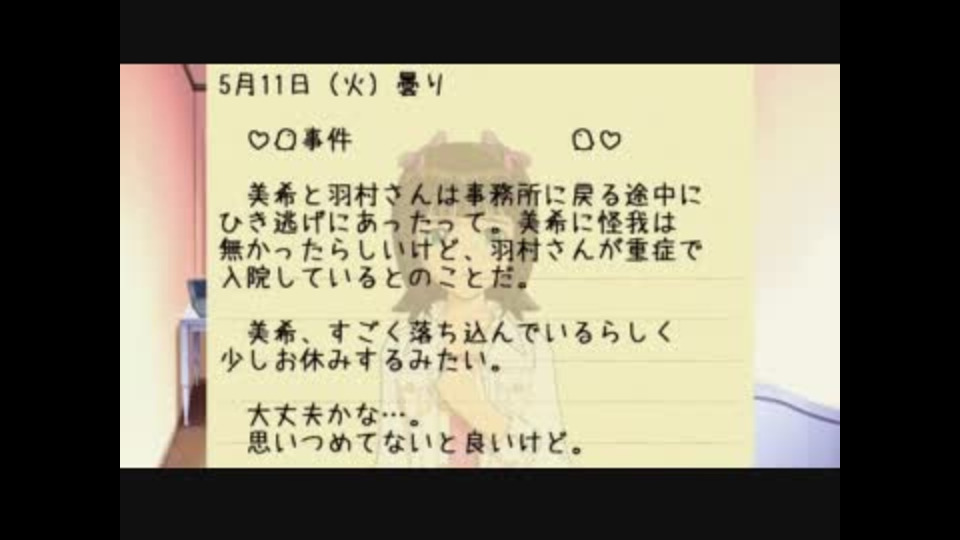 5月11日（火）曇り
♡事件 ♡
美希と羽村さんは事務所に戻る途中に
ひき逃げにあったって。美希に怪我は
無かったらしいけど、羽村さんが重症で
入院しているとのことだ。
美希、すごく落ち込んでいるらしく
少しお休みするみたい。
大丈夫かな…。
思いつめてないと良いけど。